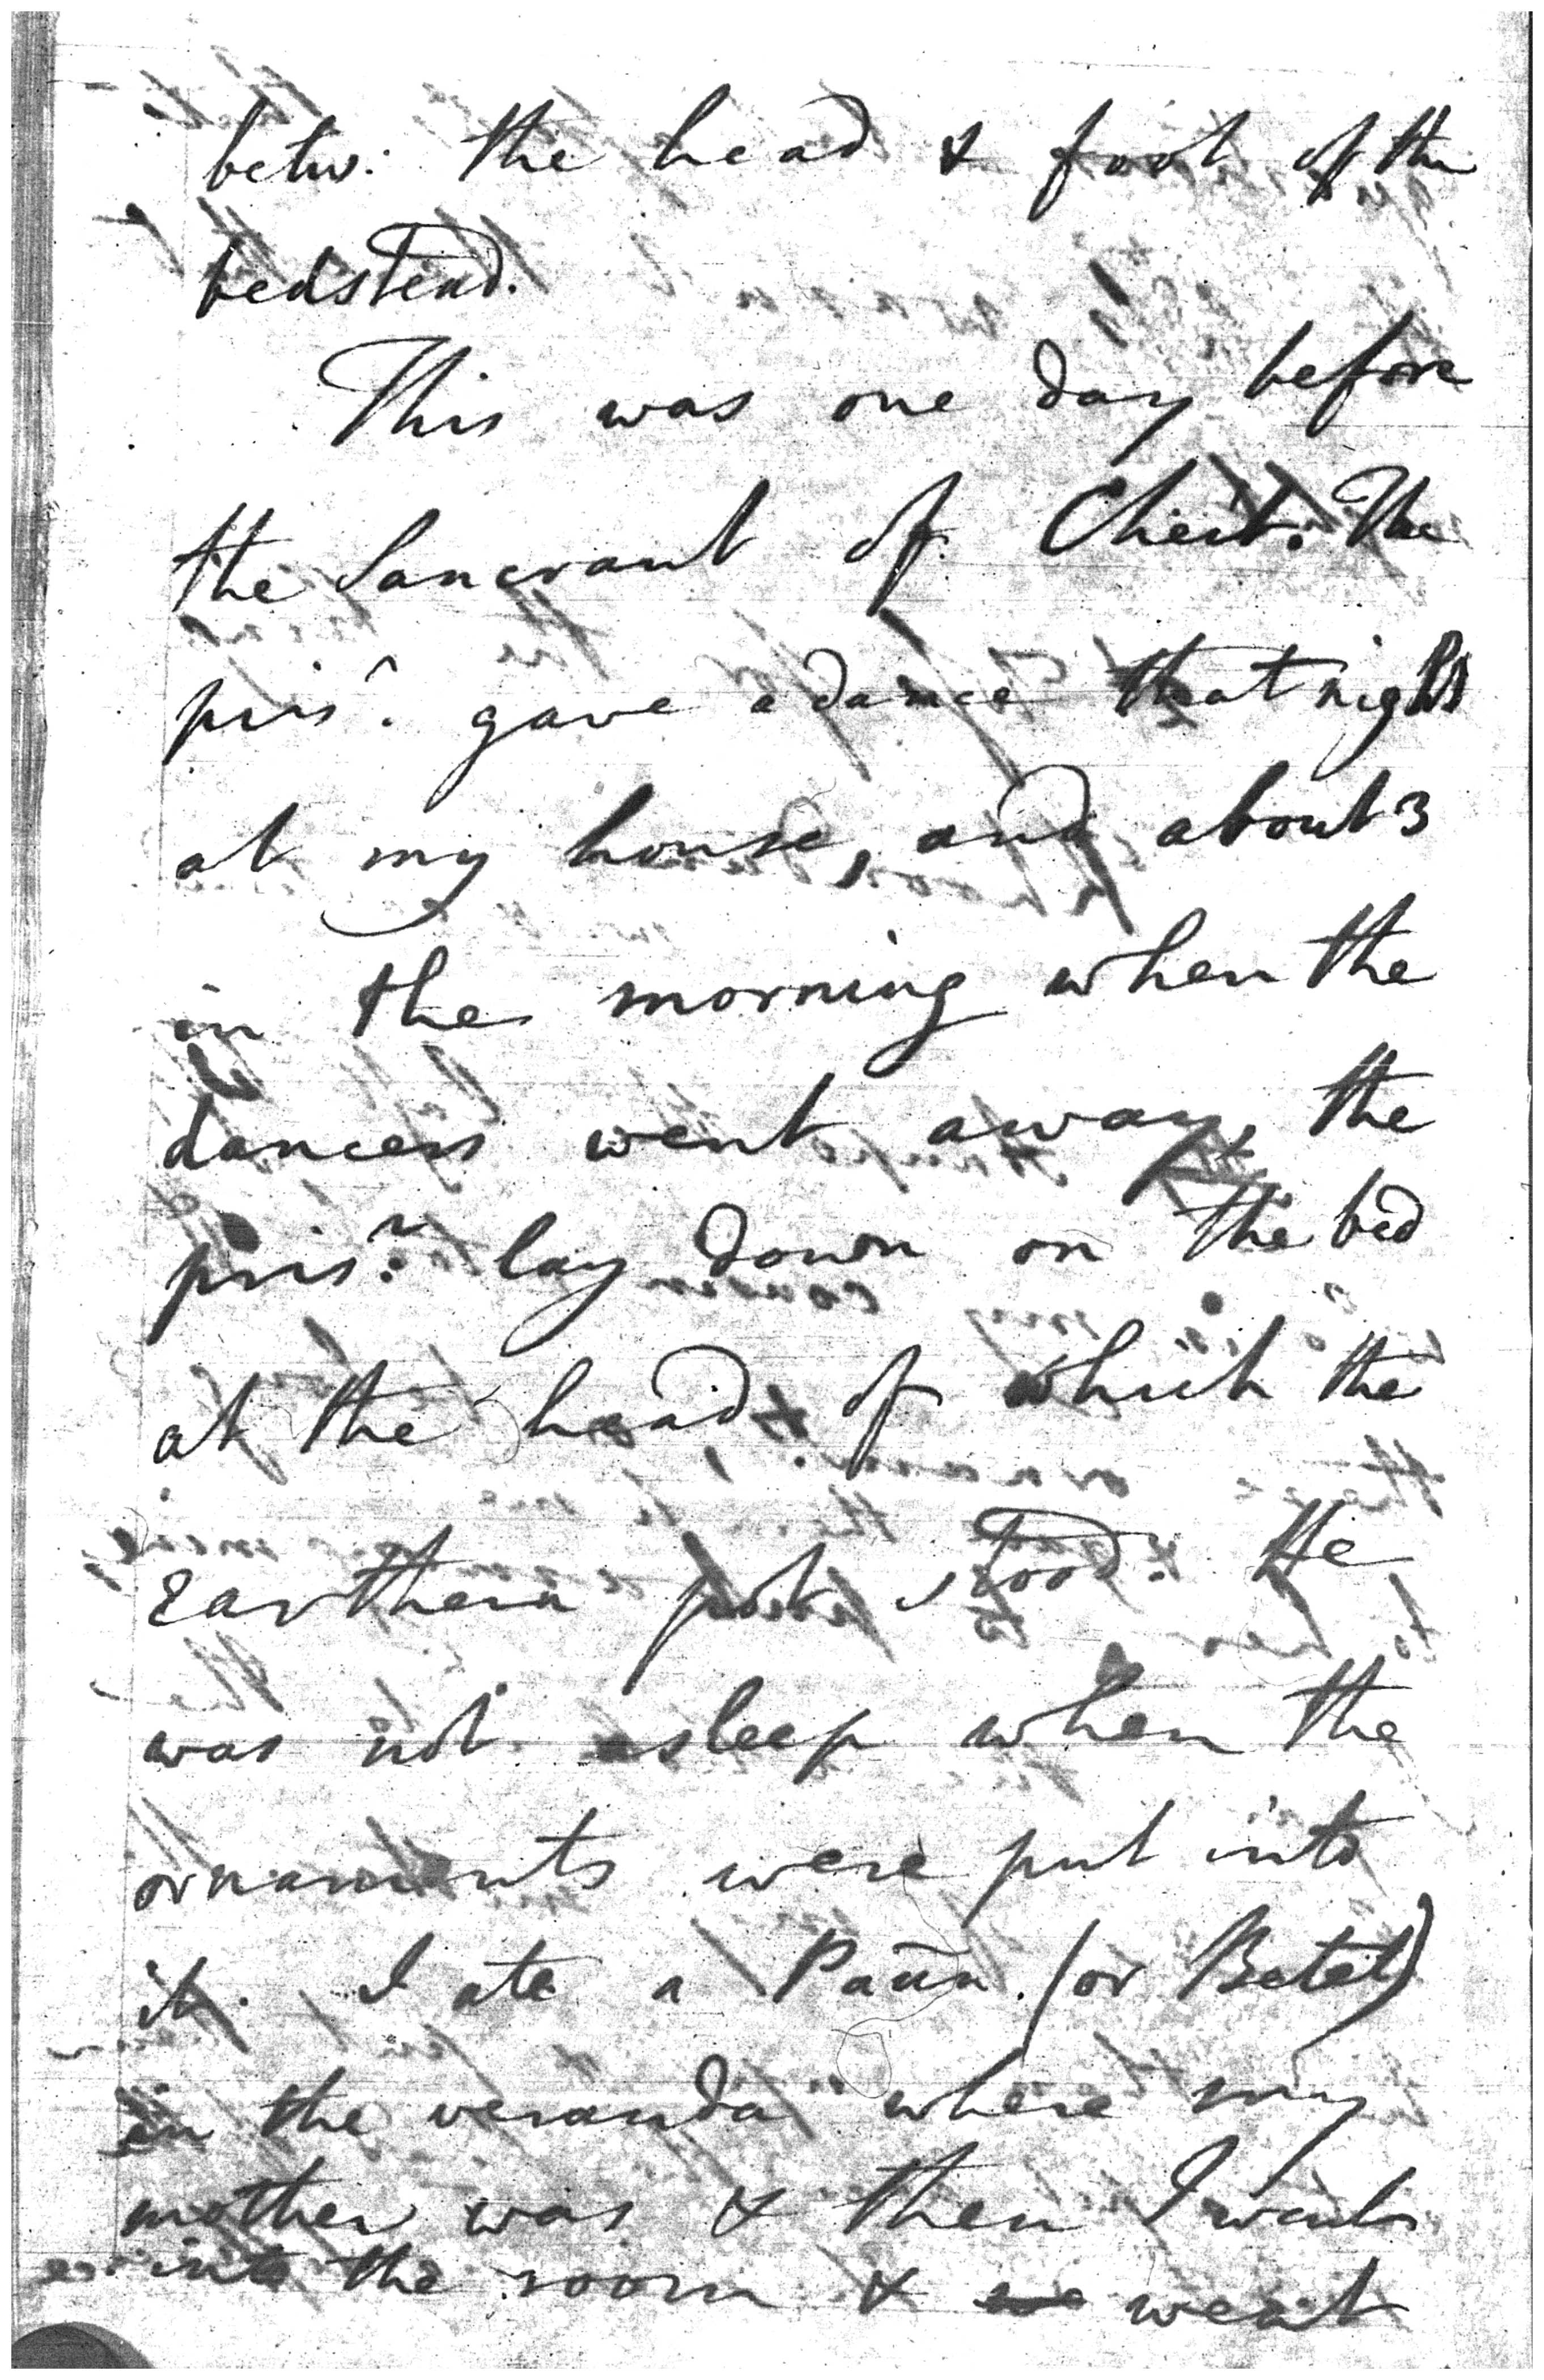 betw: the head & foot of the
bedstead.
This was one day before
the Sancrant of Cheit. The
pris.r gave a dance that night
at my house, and about 3
in the morning when the
dancers went away, the
pris.r lay down on the bed
at the head of which the
Earthern pot stood. He
was not asleep when the
ornaments were put into
it. I ate a Paun (or Betel)
in the veranda where my
mother was & then I went
into the room & we went